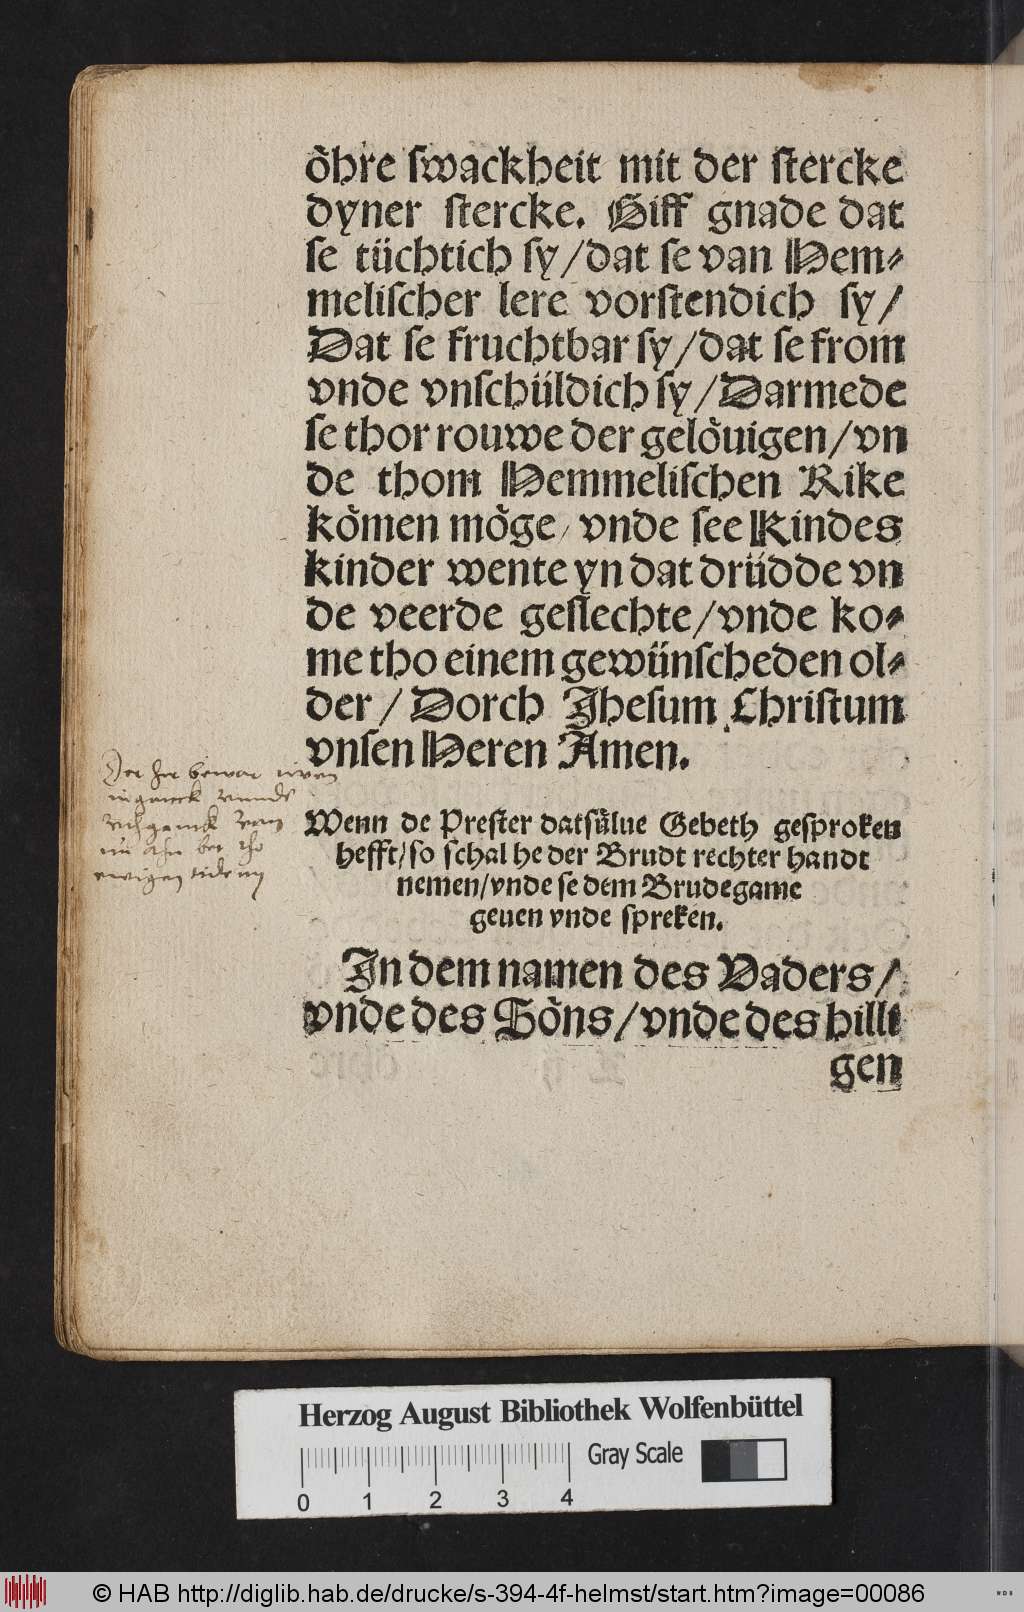 oͤhre swackheit mit der stercke
dyner stercke. Giff gnade dat
se tüchtich sy/dat se van Hem⸗
melischer lere vorstendich sy/
Dat se fruchtbar sy/dat se from
vnde vnschüldich sy/Darmede
se thor rouwe der geloͤuigen/vn
de thom Hemmelischen Rike
koͤmen moͤge/vnde see Kindes
kinder wente yn dat drüdde vn
de veerde geslechte/vnde ko⸗
me tho einem gewünscheden ol⸗
der/Dorch Jhesum Christum
vnsen Heren Amen.
Der her bewar
ingangk vnnde
vthganck van
nu ahn bet tho
ewigen tiden
Wenn de Prester datsülue Gebeth gesproken
hefft/so schal he der Brudt rechter handt
nemen/vnde se dem Brudegame
geuen vnde spreken.
In dem namen des Vaders/
vnde des Soͤns/vnde des hilli
gen
Herzog August Bibliothek Wolfenbüttel
Gray Scale
0 1 2 3 4
© HAB http://diglib.hab.de/drucke/s-394-4f-helmst/start.htm?image=00086